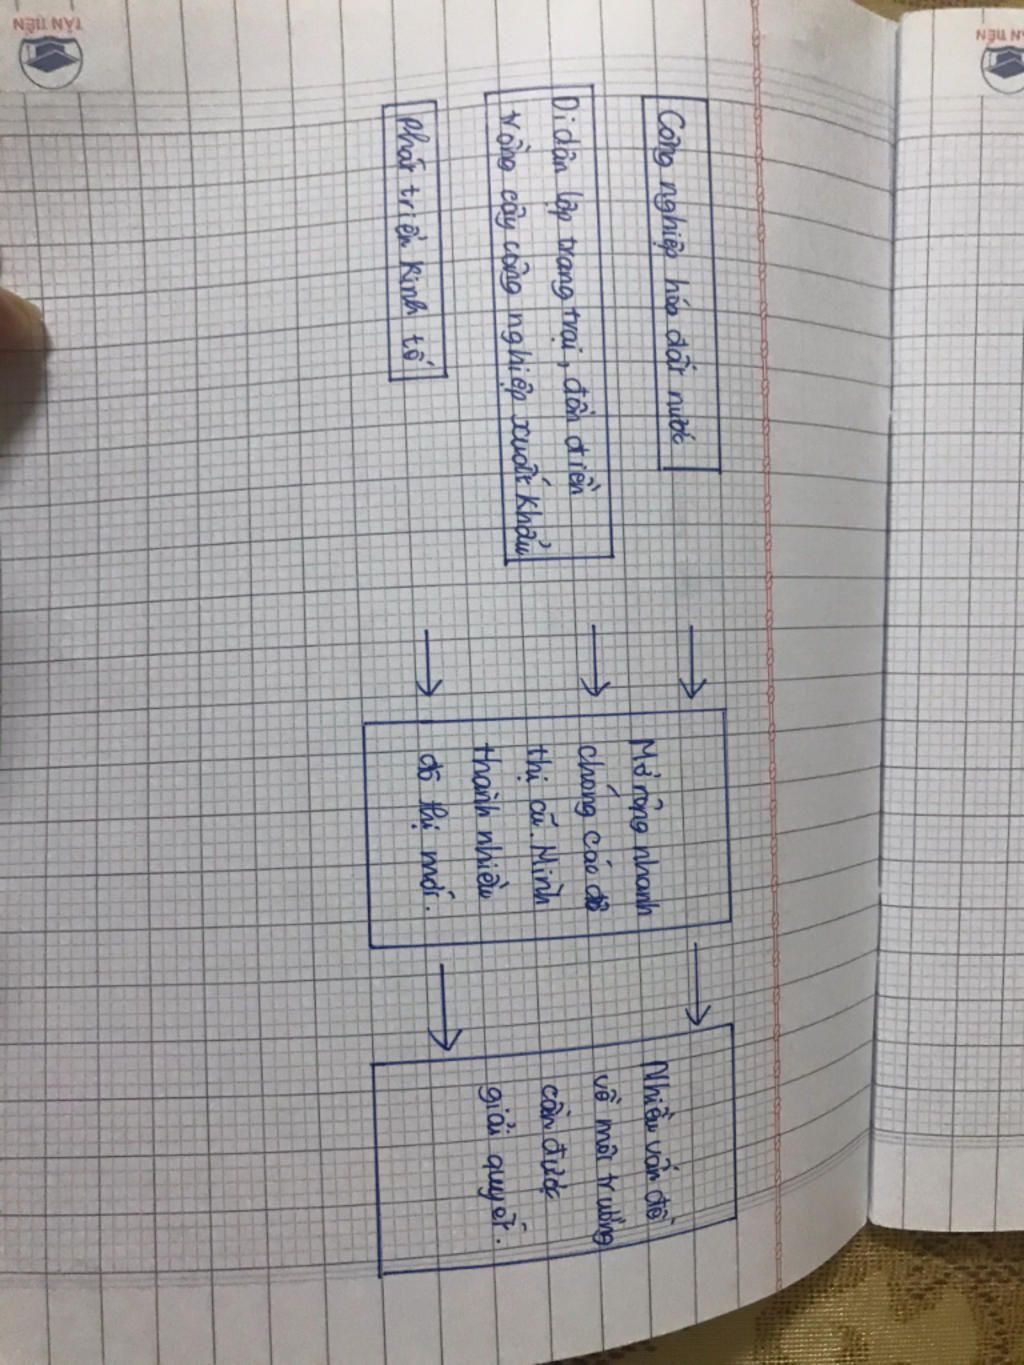 TÂN TIẾN
Công nghiệp hóa đất nước
Di dân lập trang trại, đồn điền
trồng cây công nghiệp xuất khẩu
Phát triển Kinh tế
Mở rộng nhanh
chóng các đô
thị cũ. Hình
thành nhiều
đô thị mới.
Nhiều vấn đề
về môi trường
cần được
giải quyết.